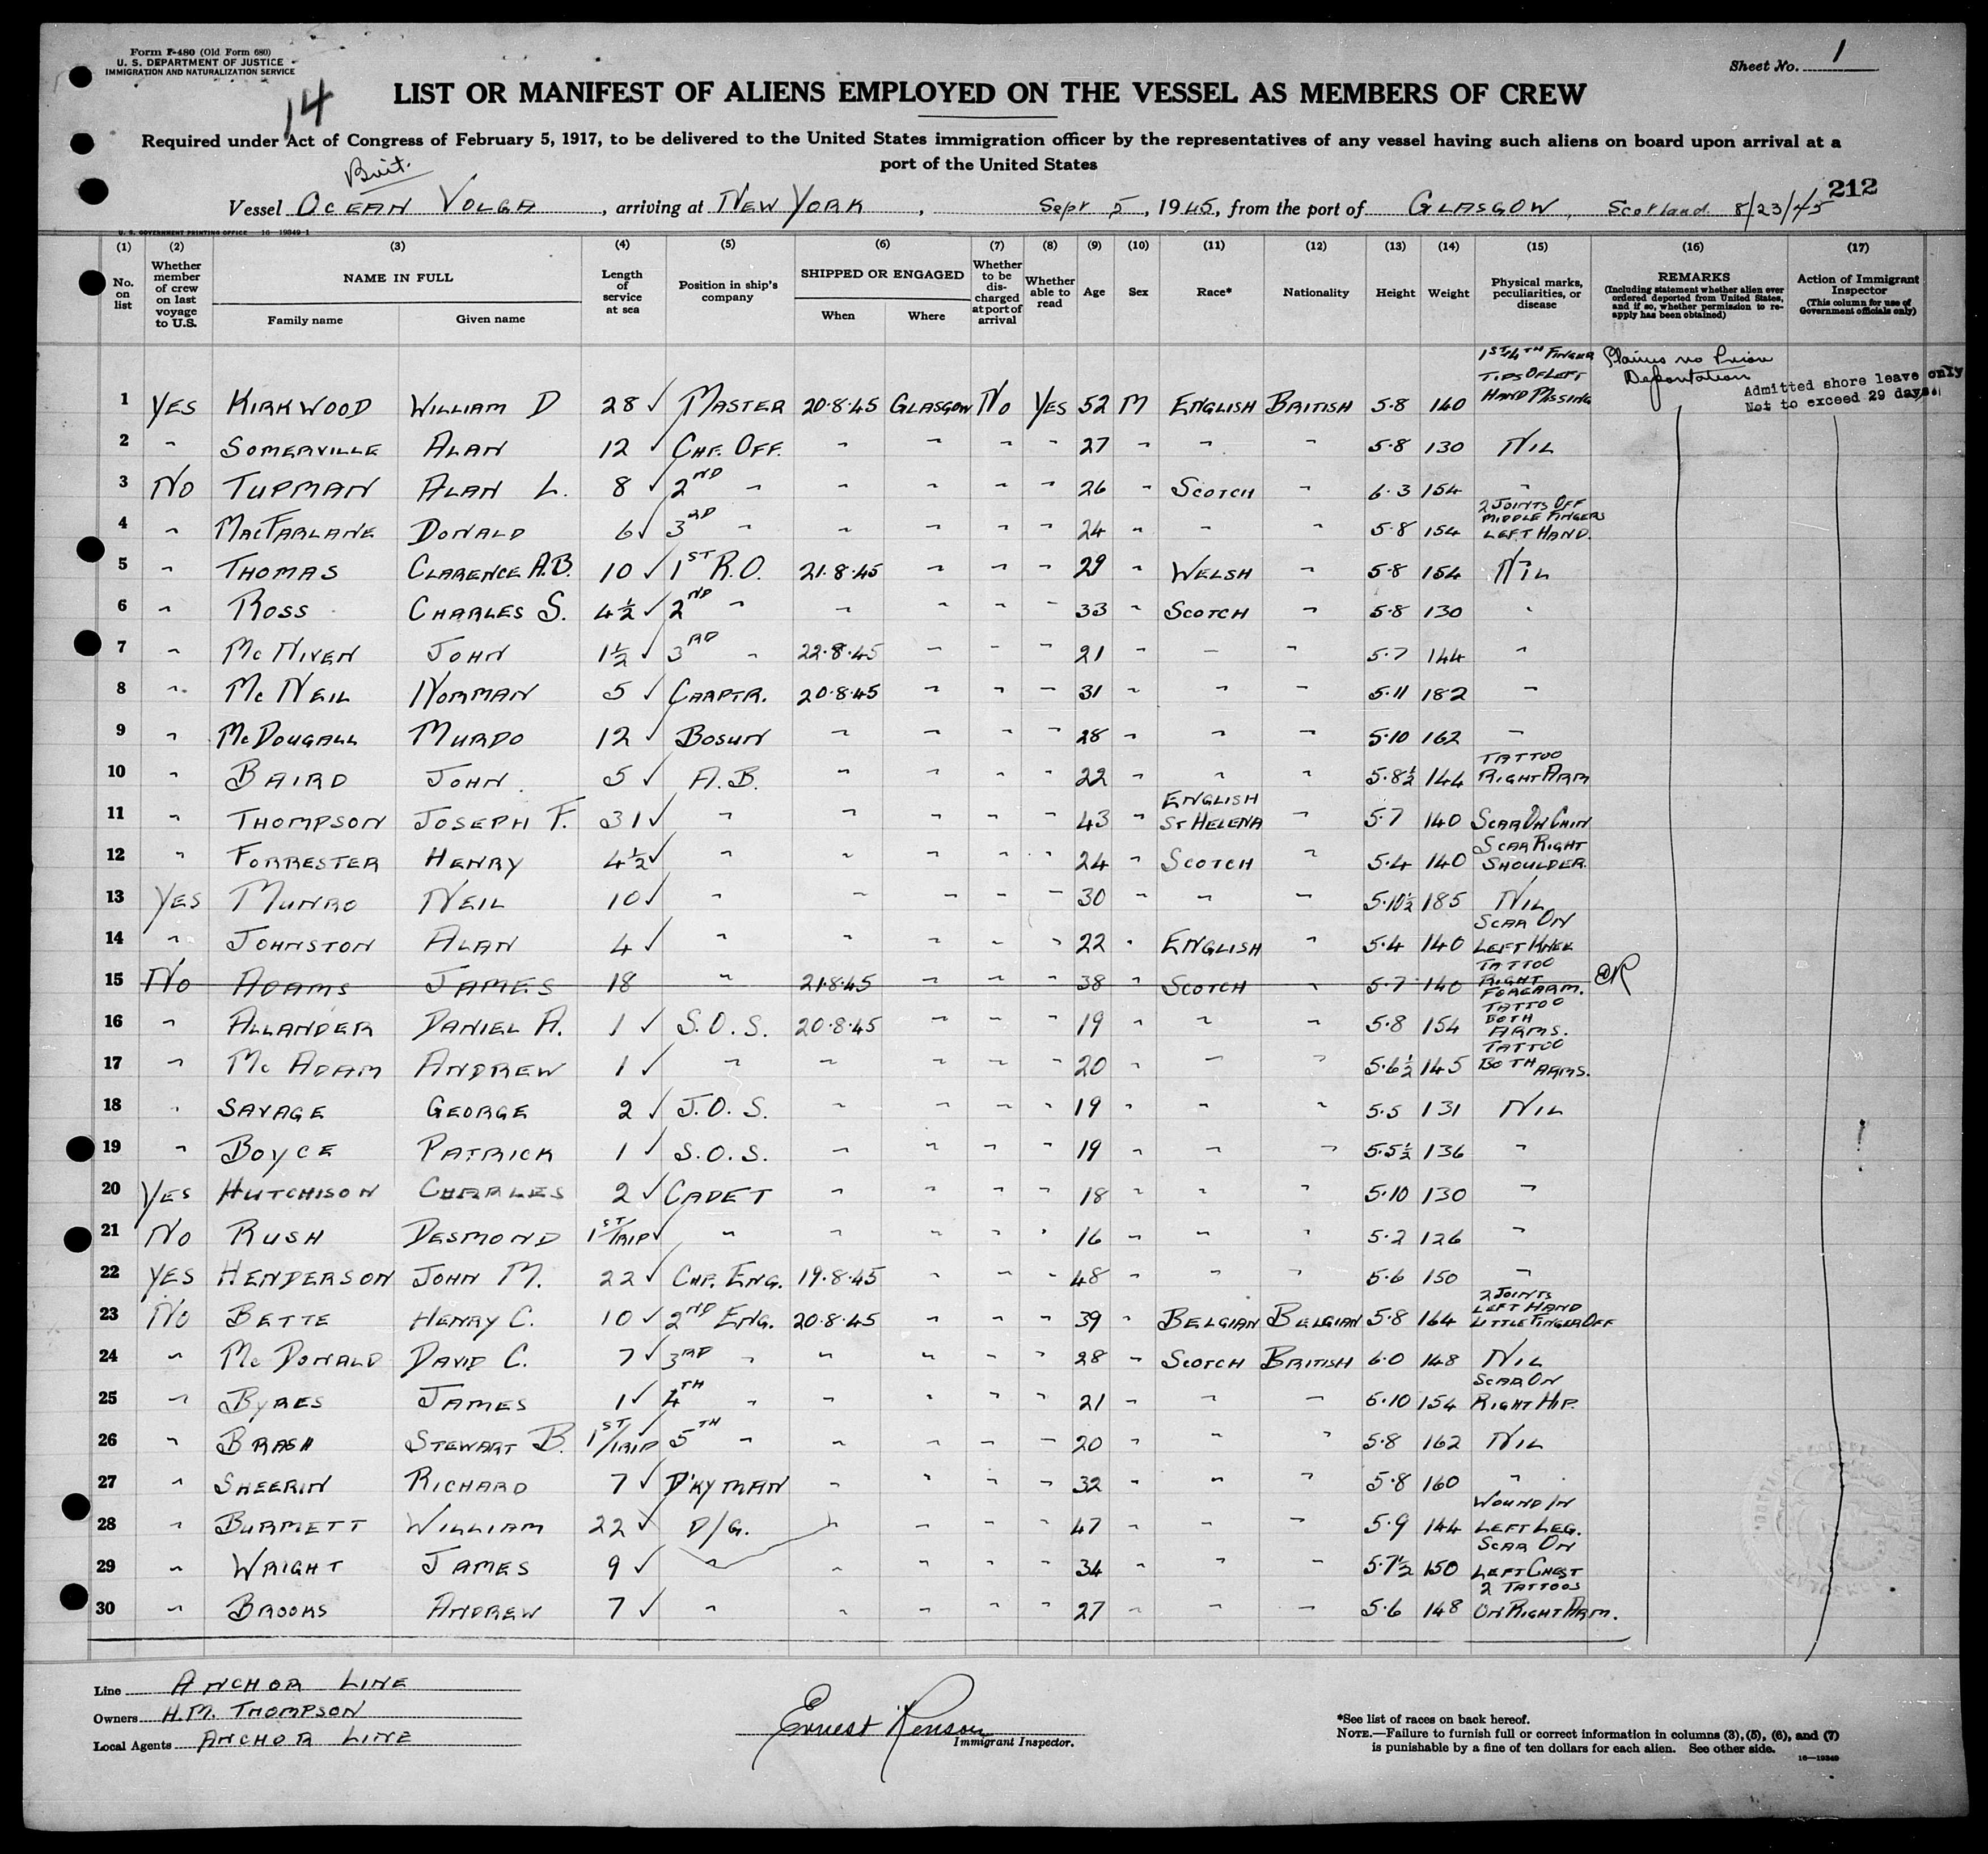 Form F-480 (Old Form 680)
U. S. DEPARTMENT OF JUSTICE
IMMIGRATION AND NATURALIZATION SERVICE
Sheet No. 1
14
LIST OR MANIFEST OF ALIENS EMPLOYED ON THE VESSEL AS MEMBERS OF CREW
Required under Act of Congress of February 5, 1917, to be delivered to the United States immigration officer by the representatives of any vessel having such aliens on board upon arrival at a
port of the United States
Brit.
212
Vessel OCEAN VOLGA, arriving at NEW YORK, Sept 5, 1945, from the port of GLASGOW, Scotland 8/23/45
U. S. GOVERNMENT PRINTING OFFICE 16—19849-1
(1) (2) (3) (4) (5) (6) (7) (8) (9) (10) (11) (12) (13) (14) (15) (16) (17)
No. on list
Whether member of crew on last voyage to U.S.
NAME IN FULL
Family name Given name
Length of service at sea
Position in ship's company
SHIPPED OR ENGAGED
When Where
Whether to be discharged at port of arrival
Whether able to read
Age
Sex
Race*
Nationality
Height
Weight
Physical marks, peculiarities, or disease
REMARKS
(Including statement whether alien ever ordered deported from United States, and if so, whether permission to re-apply has been obtained)
Action of Immigrant Inspector
(This column for use of Government officials only)
1 YES KIRKWOOD WILLIAM D 28 ✓ MASTER 20.8.45 GLASGOW NO YES 52 M ENGLISH BRITISH 5.8 140 1ST 4TH FINGER TIPS OF LEFT HAND MISSING no Prior Deportation Admitted shore leave only Not to exceed 29 days.
2 " SOMERVILLE ALAN 12 ✓ CHF. OFF. " " " " 27 " " " 5.8 130 NIL
3 NO TUPMAN ALAN L. 8 ✓ 2ND " " " " " 26 " SCOTCH " 6.3 154 "
4 " MACFARLANE DONALD 6 ✓ 3RD " " " " " 24 " " " 5.8 154 2 JOINTS OFF MIDDLE FINGERS LEFT HAND.
5 " THOMAS CLARENCE A.B. 10 ✓ 1ST R.O. 21.8.45 " " " 29 " WELSH " 5.8 154 NIL
6 " ROSS CHARLES S. 4½ ✓ 2ND " " " " " 33 " SCOTCH " 5.8 130 "
7 " MCNIVEN JOHN 1½ ✓ 3RD " 22.8.45 " " " 21 " " " 5.7 144 "
8 " MCNEIL NORMAN 5 ✓ CARPTR. 20.8.45 " " " 31 " " " 5.11 182 "
9 " MCDOUGALL MURDO 12 ✓ BOSUN " " " " 28 " " " 5.10 162 "
10 " BAIRD JOHN 5 ✓ A.B. " " " " 22 " " " 5.8½ 144 TATTOO RIGHT ARM
11 " THOMPSON JOSEPH F. 31 ✓ " " " " " 43 " ENGLISH ST HELENA " 5.7 140 SCAR ON CHIN
12 " FORRESTER HENRY 4½ ✓ " " " " " 24 " SCOTCH " 5.4 140 SCAR RIGHT SHOULDER.
13 YES MUNRO NEIL 10 ✓ " " " " " 30 " " " 5.10½ 185 NIL
14 " JOHNSTON ALAN 4 ✓ " " " " " 22 " ENGLISH " 5.4 140 SCAR ON LEFT KNEE
15 NO ADAMS JAMES 18 " 21.8.45 " " " 38 " SCOTCH " 5.7 140 TATTOO RIGHT FOREARM.
16 " ALLANDER DANIEL A. 1 ✓ S.O.S. 20.8.45 " " " 19 " " " 5.8 154 TATTOO BOTH ARMS.
17 " MCADAM ANDREW 1 ✓ " " " " " 20 " " " 5.6½ 145 TATTOO BOTH ARMS.
18 " SAVAGE GEORGE 2 ✓ J.O.S. " " " " 19 " " " 5.5 131 NIL
19 " BOYCE PATRICK 1 ✓ S.O.S. " " " " 19 " " " 5.5½ 136 "
20 YES HUTCHISON CHARLES 2 ✓ CADET " " " " 18 " " " 5.10 130 "
21 NO RUSH DESMOND 1ST TRIP ✓ " " " " " 16 " " " 5.2 126 "
22 YES HENDERSON JOHN M. 22 ✓ CHF. ENG. 19.8.45 " " " 48 " " " 5.6 150 "
23 NO BETTE HENRY C. 10 ✓ 2ND ENG. 20.8.45 " " " 39 " BELGIAN BELGIAN 5.8 164 2 JOINTS LEFT HAND LITTLE FINGER OFF
24 " MCDONALD DAVID C. 7 ✓ 3RD " " " " " 28 " SCOTCH BRITISH 6.0 148 NIL
25 " BYRES JAMES 1 ✓ 4TH " " " " " 21 " " " 5.10 154 SCAR ON RIGHT HIP.
26 " BRASH STEWART B. 1ST TRIP ✓ 5TH " " " " " 20 " " " 5.8 162 NIL
27 " SHEERIN RICHARD 7 ✓ D'KYMAN " " " " 32 " " " 5.8 160 "
28 " BURMETT WILLIAM 22 ✓ D/G. " " " " 47 " " " 5.9 144 WOUND IN LEFT LEG.
29 " WRIGHT JAMES 9 ✓ " " " " " 34 " " " 5.7½ 150 SCAR ON LEFT CHEST
30 " BROOKS ANDREW 7 ✓ " " " " " 27 " " " 5.6 148 2 TATTOOS ON RIGHT ARM.
Line ANCHOR LINE
Owners H.M. THOMPSON
Local Agents ANCHOR LINE
Ernest Renson
Immigrant Inspector.
*See list of races on back hereof.
NOTE.—Failure to furnish full or correct information in columns (3), (5), (6), and (7)
is punishable by a fine of ten dollars for each alien. See other side.
16—19849